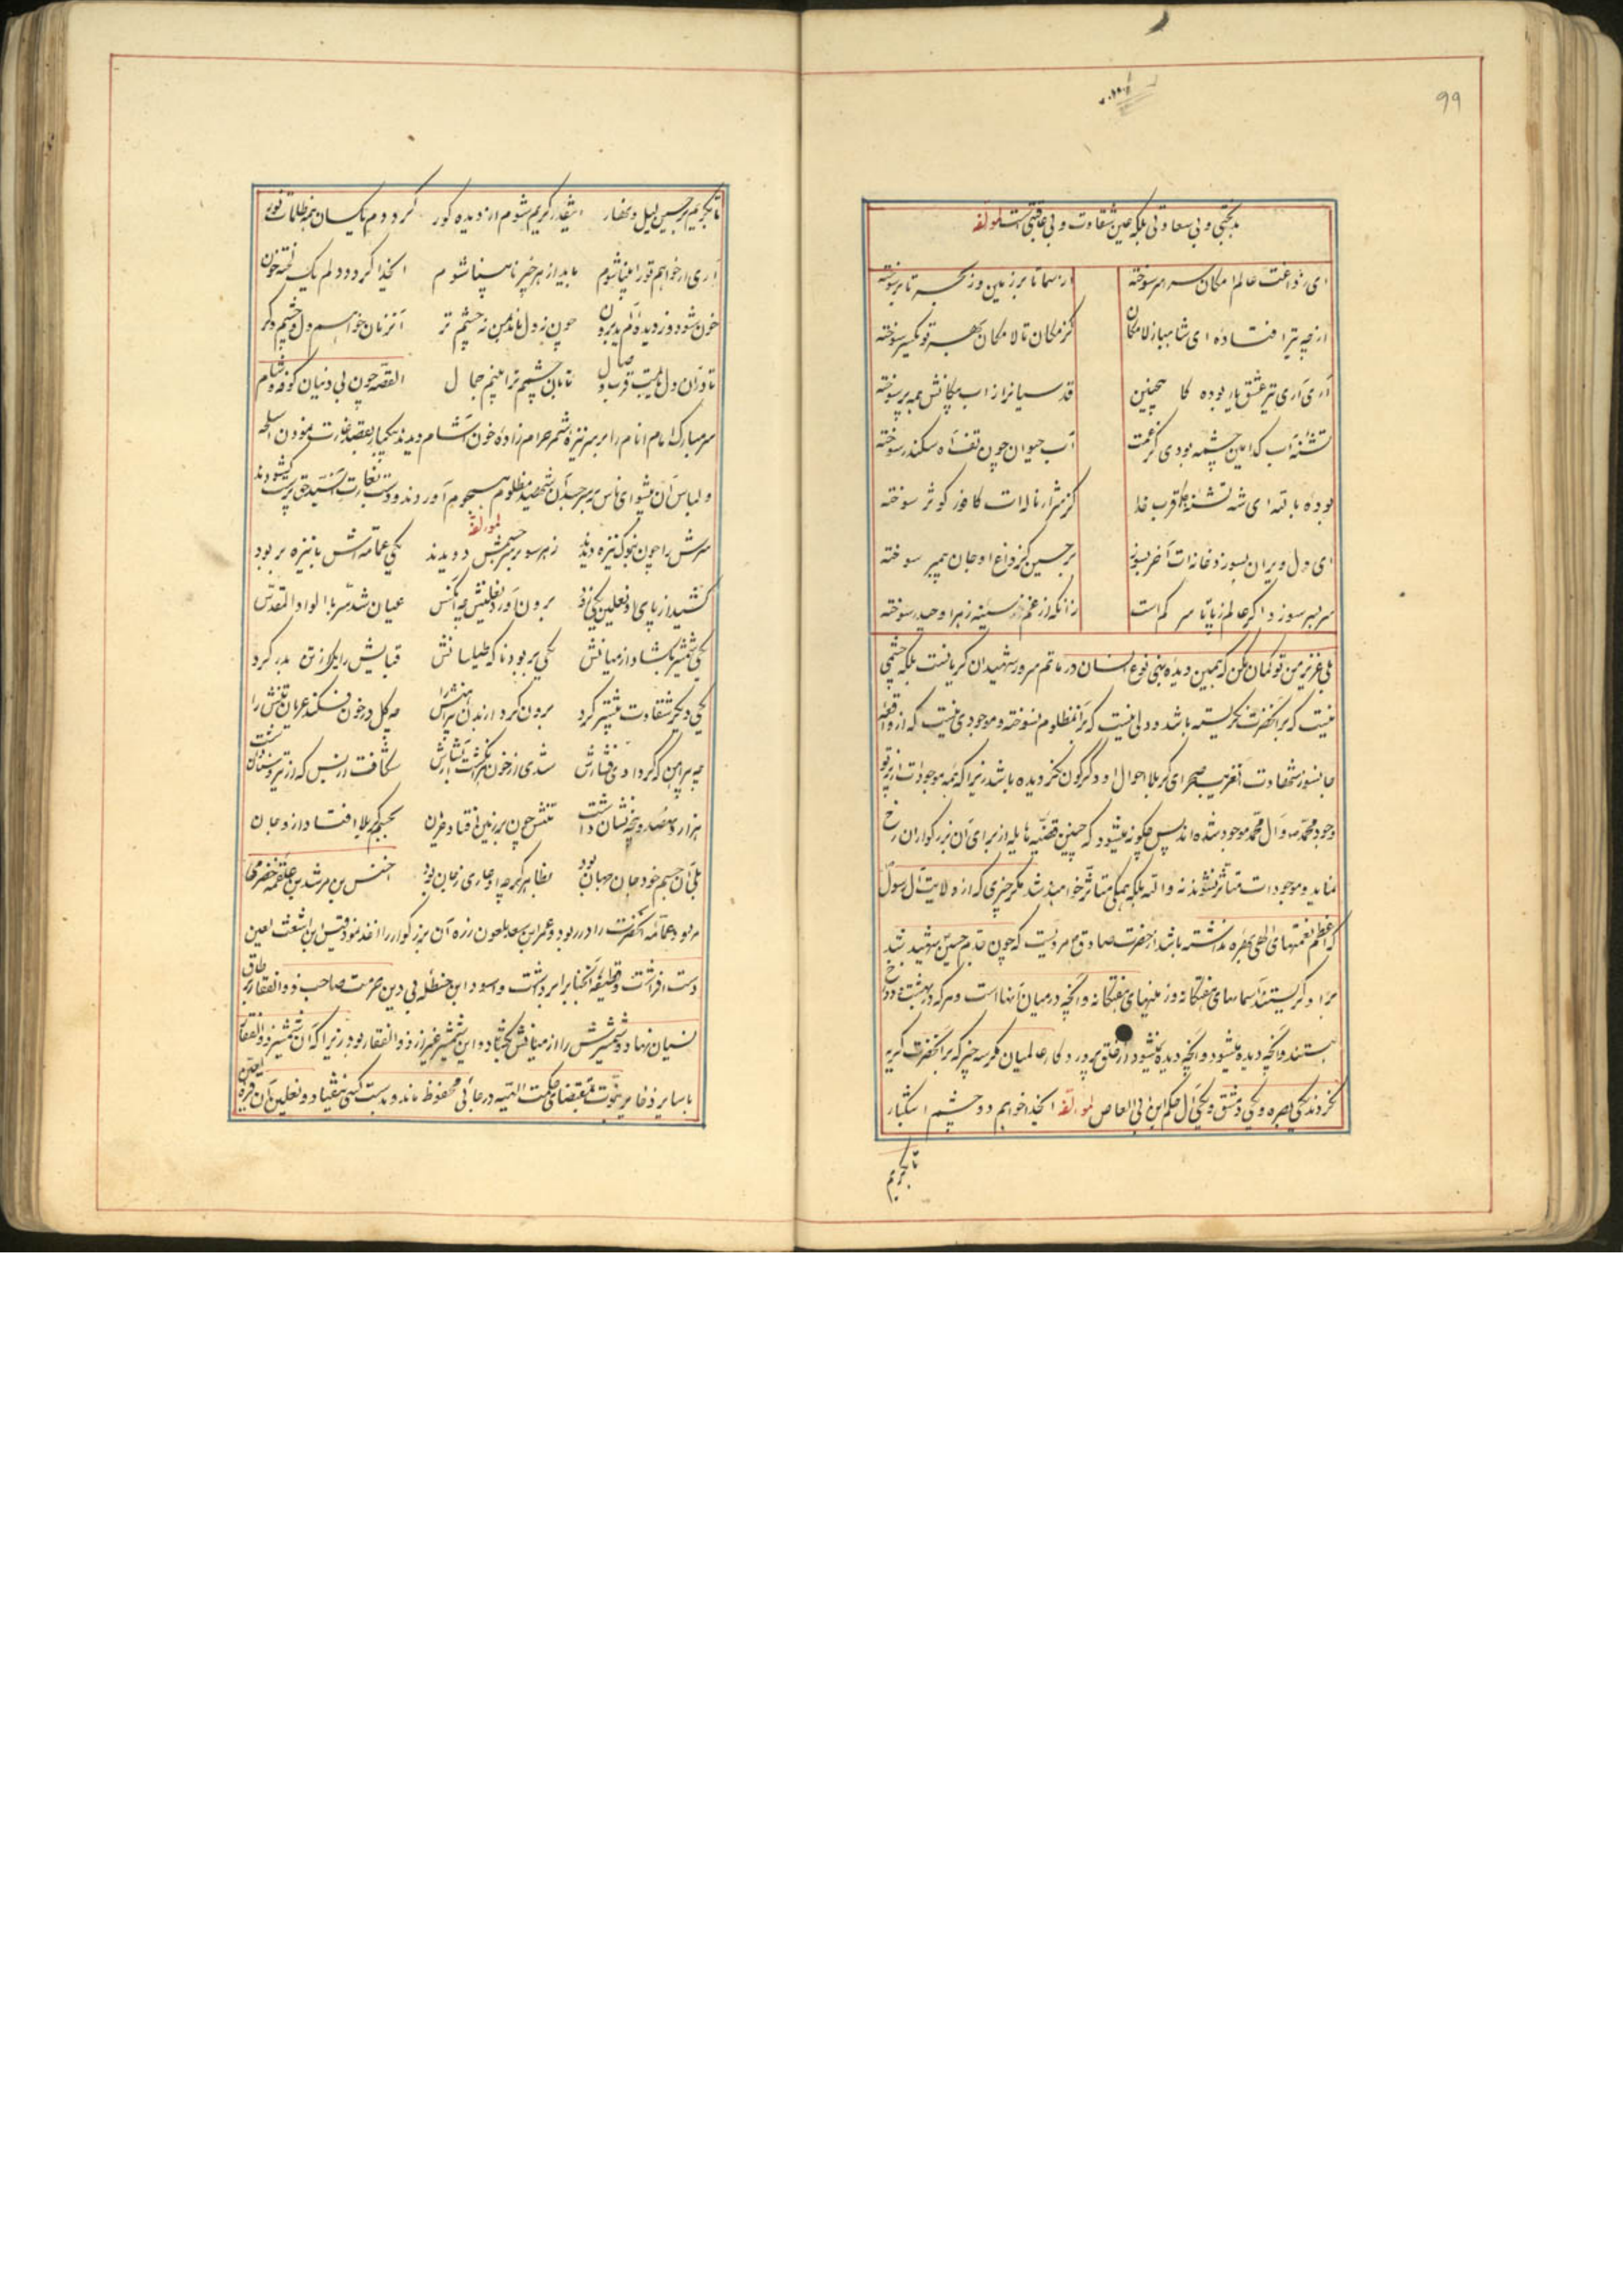 99
بدبختی و بی سعادتی بلکه عین شقاوت و بی عاقبتی است لمولفه
ای ز داغت عالم امکان سراسر سوخته از سما تا بر زمین وز بحر تا بر سوخته
از چه تیر افتاده ای شاهباز لامکان کز مکان تا لامکان بهر تو یکسر سوخته
آری آری تیر عشق یار بوده کاینچنین قدسیانرا از اب پیکانش همه پر سوخته
تشنه آب کدامین چشمه بودی کز غمت آب حیوان چون تف آه سکندر سوخته
بوده بالله ای شه تشنه قرب خدا کز شرار ناله ات کافور کوثر سوخته
ای دل ویران بسوز و خانه ات آخر بسوز بر حسین کز داغ او جان پیمبر سوخته
سر بسر سوزد اگر عالم ز پا تا سر کم است زانکه از غم سینه زهرا و حیدر سوخته
بلی عزیز من تو گمان مکن که همین دیده بنی نوع انسان در ماتم سرور شهیدان گریانست بلکه چشمی
نیست که بر آنحضرت نگریسته باشد و دلی نیست که بر آنمظلوم نسوخته و موجودی نیست که از واقعه
جانسوز شهادت آنغریب صحرای کربلا احوال او دگرگون نگردیده باشد زیرا که همه موجودات از پرتو
وجود محمد و آل محمد موجود شده اند پس چگونه میشود که چنین قضیه هایله از برای آن بزرگواران رخ
نماید و موجودات متاثر نشوند نه والله بلکه همگی متاثر خواهند شد مگر چیزی که از ولایت آل رسول
که اعظم نعمتهای الهی بهره نداشته باشد از حضرت صادق مرویست که چون جدم حسین شهید شد
بر او گریستند آسمانهای هفتگانه و زمینهای هفتگانه و آنچه در میان آنها است و هر که در بهشت و دوزخ
هستند و آنچه دیده میشود و آنچه دیده نمیشود از خلق پروردگار عالمیان مگر سه چیز که بر آنحضرت گریه
نکردند یکی بصره و یکی دمشق و یکی آل حکم ابن ابی العاص لمولفه ایخدا خواهم دو چشم اشکبار
تا بگریم
تا بگریم بر حسین لیل و نهار اینقدر گریم شوم از دیده کور گردد م یکسان همه ظلمات و نور
آری ار خواهم تو را بینا شوم باید از هر چیز نابینا شوم ایخدا گردد دلم یک لخته خون
خون شود وز دیده ام آید برون چون ز دل ماند بمن نه چشم تر آنزمان خواهم دل و چشم دگر
تا در آن دل یابمت قرب وصال تا بآن چشم ترا بینم جمال القصه چون بی دینان کوفه و شام
سر مبارک امام انام را بر سر نیزه شمر حرام زاده خون آشام دیدند یکبار بقصد غارت نمودن اسلحه
و لباس آن پیشوای ناس بر سر جسد آن شهید مظلوم هجوم آوردند و دست بغارت آنسید حق پرست گشودند
لمولفه
سرش را چون بنوک نیزه دیدند ز هر سو بر سر جسمش دویدند یکی عمامه اش با نیزه بربود
کشید از پای او نعلین یکی زود برون آورد نعلینش چه آنکس عیان شد سر بالواد المقدس
یکی شمشیر بگشاد از میانش یکی بربود ناگه طیلسانش قبایش را یکی از تن بدر کرد
یکی دیگر شقاوت بیشتر کرد برون کرد از بدن پیراهنش را چه گل در خون فکند عریان تنش را
چه پیراهن که گر دادی فشارش شدی از خون هر انگشت آبشارش شکافت از بس که از تیر و سنان داشت
هزار و نهصد و پنجه نشان داشت تنش چون بر زمین افتاد عریان بجسم کربلا افتاد از و جان
بلی آن جسم خود جان جهان بود بظاهر گرچه او عاری ز جان بود اخنس بن مرشد بن علقمه خضرمی
بود عمامه آنحضرت را در ربود و عمر ابن سعد ملعون زره آن بزرگوار را اخذ نمود و قیس ابن اشعث لعین
دست افراشت و قطیفه آنجناب را برداشت و اسود ابن حنظله بی دین حرمت صاحب ذوالفقار بر طاق
نسیان نهاد و شمشیرش را از میانش بگشاد و این شمشیر غیر از ذوالفقار بود زیرا که آن شمشیر ذوالفقار
با سایر ذخایر نبوت بمقتضای حکمت الهیه در جائی محفوظ ماند و بدست کسی نیفتاد و نعلین آن قره العین